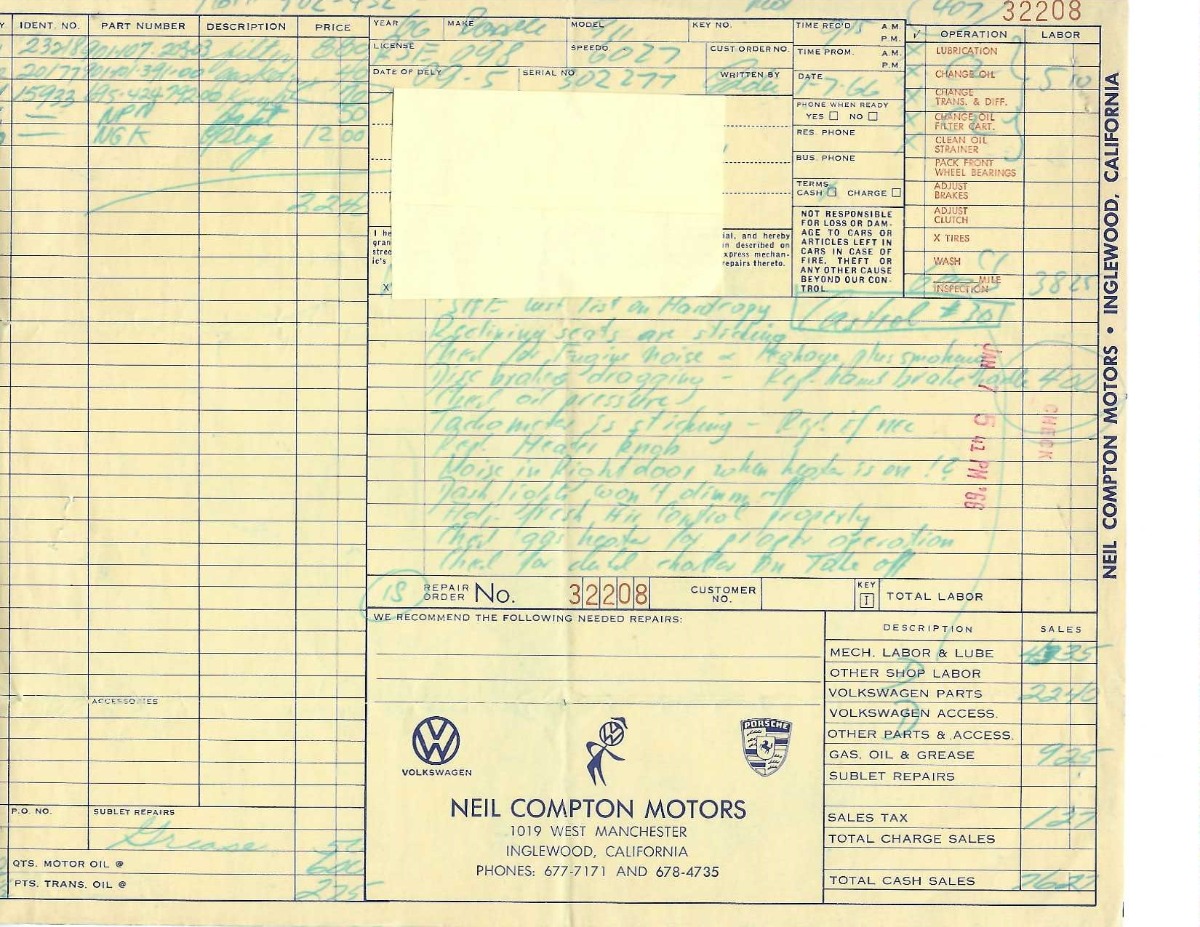 32208
IDENT. NO. PART NUMBER DESCRIPTION PRICE
23218 901·107·203·03
20177 901·101·391·00
15933
NPN 50
NGK 12 00
2240
ACCESSORIES
P.O. NO. SUBLET REPAIRS
Grease
QTS. MOTOR OIL @ 600
PTS. TRANS. OIL @ 275
YEAR MAKE MODEL KEY NO.
LICENSE SPEEDO. CUST. ORDER NO.
098 6027
DATE OF DEL'Y SERIAL NO. WRITTEN BY
09-5 302277
TIME REC'D A.M. P.M.
TIME PROM. A.M. P.M.
DATE
1-7-66
PHONE WHEN READY
YES NO
RES. PHONE
BUS. PHONE
TERMS
CASH CHARGE
NOT RESPONSIBLE
FOR LOSS OR DAM-
AGE TO CARS OR
ARTICLES LEFT IN
CARS IN CASE OF
FIRE, THEFT OR
ANY OTHER CAUSE
BEYOND OUR CON-
TROL
I he
gran
stree
ic's
X
ial, and hereby
in described on
xpress mechan-
repairs thereto.
✓ OPERATION LABOR
LUBRICATION
CHANGE OIL 5 10
CHANGE
TRANS. & DIFF.
CHANGE OIL
FILTER CART.
CLEAN OIL
STRAINER
PACK FRONT
WHEEL BEARINGS
ADJUST
BRAKES
ADJUST
CLUTCH
X TIRES
WASH
MILE
INSPECTION 38 25
list on Hardtopy
Castrol #30
Reclining seats are sticking
Check for Engine Noise plus smoking
Disc brakes dragging - hand brake 400
Check oil pressure
Tachometer is sticking - if nec
Header knob
Noise in Right door when heater is on !?
Dash lights won't dimm off
Fresh Air control properly
Check gas heater for proper operation
Check for clutch chatter on Take off
JAN 7 5 42 PM '66
CHECK
18 REPAIR ORDER No. 32208 CUSTOMER NO. KEY I TOTAL LABOR
WE RECOMMEND THE FOLLOWING NEEDED REPAIRS:
VOLKSWAGEN
PORSCHE
NEIL COMPTON MOTORS
1019 WEST MANCHESTER
INGLEWOOD, CALIFORNIA
PHONES: 677-7171 AND 678-4735
DESCRIPTION SALES
MECH. LABOR & LUBE
OTHER SHOP LABOR
VOLKSWAGEN PARTS 2240
VOLKSWAGEN ACCESS.
OTHER PARTS & ACCESS.
GAS. OIL & GREASE 925
SUBLET REPAIRS
SALES TAX 127
TOTAL CHARGE SALES
TOTAL CASH SALES 7627
NEIL COMPTON MOTORS • INGLEWOOD, CALIFORNIA